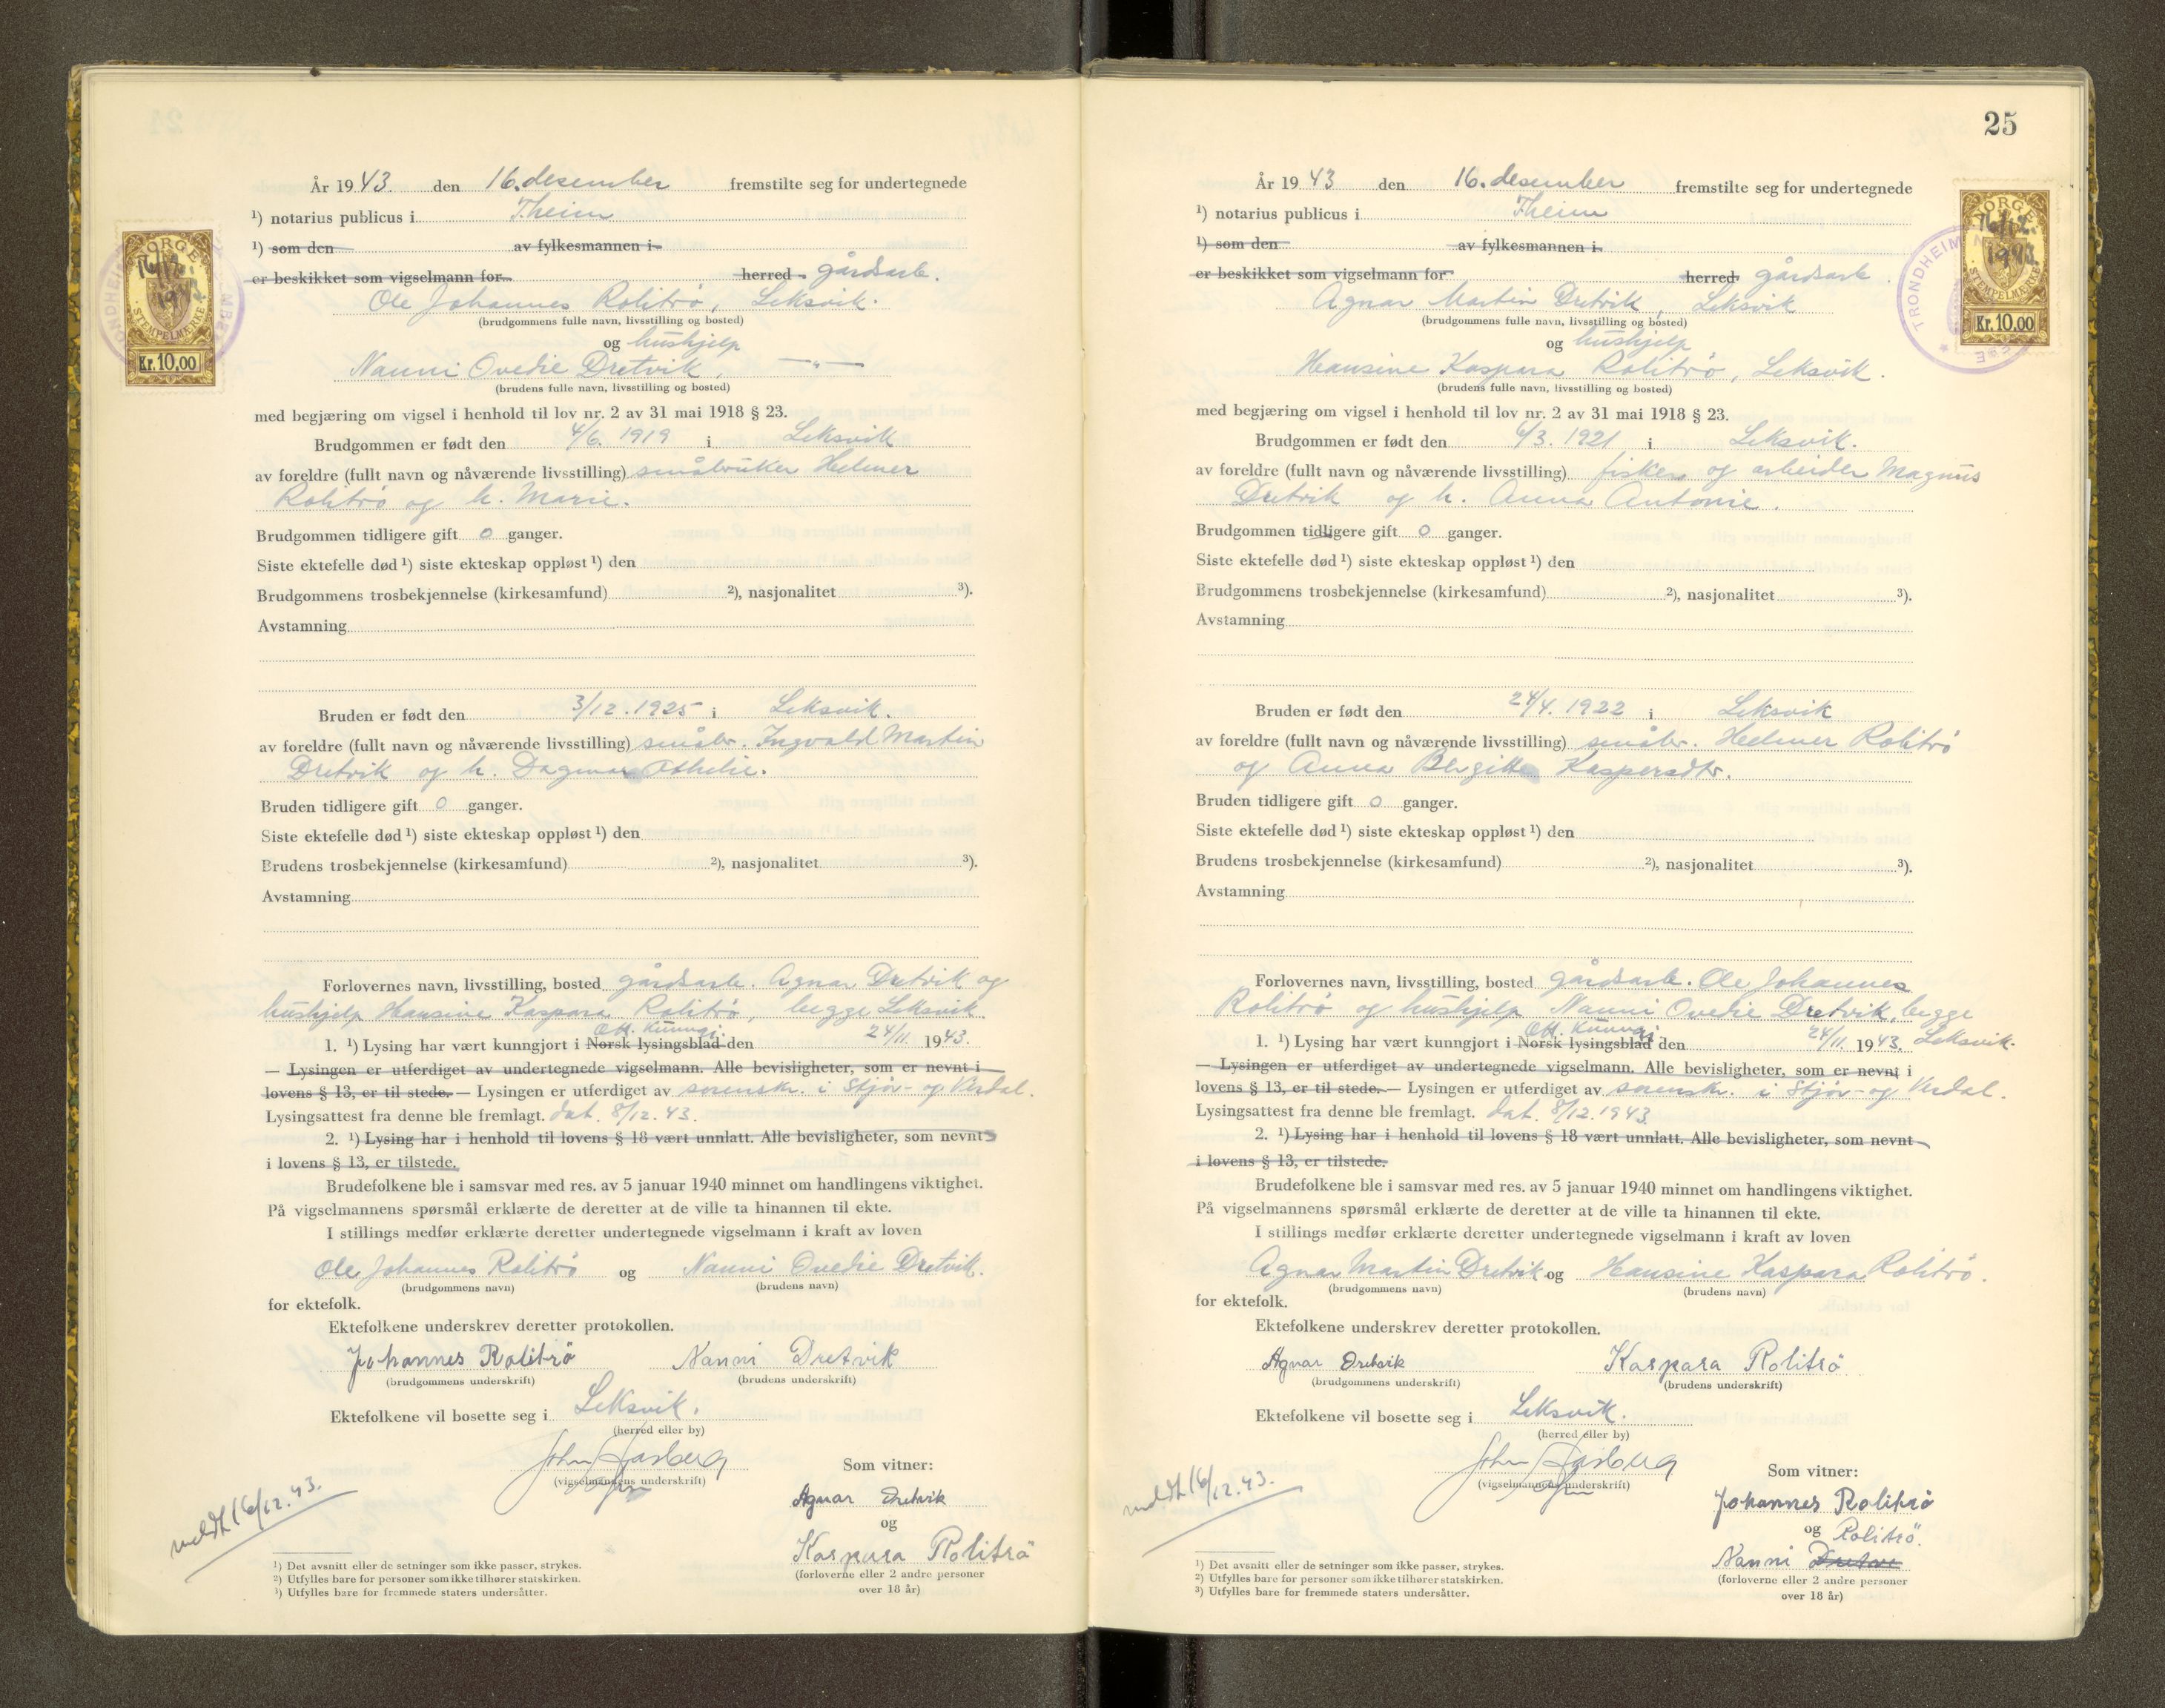 År 1943. den 16. desember fremstilte seg for undertegnede
¹) notarius publicus i Theim
¹) som den av fylkesmannen i
er beskikket som vigselmann for herred gårdsarb.
Ole Johannes Rolitrö, Leksvik.
(brudgommens fulle navn, livsstilling og bosted)
og hushjelp
Nanni Ovedie Dretvik, —"—
(brudens fulle navn, livsstilling og bosted)
med begjæring om vigsel i henhold til lov nr. 2 av 31 mai 1918 § 23.
Brudgommen er født den 4/6. 1919 i Leksvik
av foreldre (fullt navn og nåværende livsstilling) småbruker Helmer
Rolitrö og h. Marie.
Brudgommen tidligere gift 0 ganger.
Siste ektefelle død ¹) siste ekteskap oppløst ¹) den
Brudgommens trosbekjennelse (kirkesamfund) ²), nasjonalitet ³).
Avstamning
Bruden er født den 3/12. 1925 i Leksvik.
av foreldre (fullt navn og nåværende livsstilling) småbr. Ingvald Martin
Dretvik og h. Dagmar Othelie.
Bruden tidligere gift 0 ganger.
Siste ektefelle død ¹) siste ekteskap oppløst ¹) den
Brudens trosbekjennelse (kirkesamfund) ²), nasjonalitet ³).
Avstamning
Forlovernes navn, livsstilling, bosted gårdsarb. Agnar Dretvik og
hushjelp Hansine Kaspara Rolitrö, begge Leksvik.
Off. kunngj.
1. ¹) Lysing har vært kunngjort i Norsk lysingsblad den 24/11. 1943.
— Lysingen er utferdiget av undertegnede vigselmann. Alle bevisligheter, som er nevnt i
lovens § 13, er til stede. — Lysingen er utferdiget av sorenskr. i Stjør- og Verdal.
Lysingsattest fra denne ble fremlagt. dat. 8/12. 43.
2. ¹) Lysing har i henhold til lovens § 18 vært unnlatt. Alle bevisligheter, som nevnt
i lovens § 13, er tilstede.
Brudefolkene ble i samsvar med res. av 5 januar 1940 minnet om handlingens viktighet.
På vigselmannens spørsmål erklærte de deretter at de ville ta hinannen til ekte.
I stillings medfør erklærte deretter undertegnede vigselmann i kraft av loven
Ole Johannes Rolitrö og Nanni Ovedie Dretvik.
(brudgommens navn) (brudens navn)
for ektefolk.
Ektefolkene underskrev deretter protokollen.
Johannes Rolitrö Nanni Dretvik
(brudgommens underskrift) (brudens underskrift)
Ektefolkene vil bosette seg i Leksvik.
(herred eller by)
John Aasberg
(vigselmannens underskrift)
Som vitner:
Agnar Dretvik
og
Kaspara Rolitrö
(forloverne eller 2 andre personer
over 18 år)
meldt 16/12. 43.
¹) Det avsnitt eller de setninger som ikke passer, strykes.
²) Utfylles bare for personer som ikke tilhører statskirken.
³) Utfylles bare for fremmede staters undersåtter.
NORGE
16/12.
1943
STEMPELMERKE
Kr. 10,00
25
År 1943 den 16. desember fremstilte seg for undertegnede
¹) notarius publicus i Theim
¹) som den av fylkesmannen i
er beskikket som vigselmann for herred gårdsarb.
Agnar Martin Dretvik, Leksvik
(brudgommens fulle navn, livsstilling og bosted)
og hushjelp
Hansine Kaspara Rolitrö, Leksvik.
(brudens fulle navn, livsstilling og bosted)
med begjæring om vigsel i henhold til lov nr. 2 av 31 mai 1918 § 23.
Brudgommen er født den 6/3. 1921 i Leksvik.
av foreldre (fullt navn og nåværende livsstilling) fisker og arbeider Magnus
Dretvik og h. Anna Antonie.
Brudgommen tidligere gift 0 ganger.
Siste ektefelle død ¹) siste ekteskap oppløst ¹) den
Brudgommens trosbekjennelse (kirkesamfund) ²), nasjonalitet ³).
Avstamning
Bruden er født den 24/4. 1922 i Leksvik
av foreldre (fullt navn og nåværende livsstilling) småbr. Helmer Rolitrö
og Anna Bergitte Kaspersdtr.
Bruden tidligere gift 0 ganger.
Siste ektefelle død ¹) siste ekteskap oppløst ¹) den
Brudens trosbekjennelse (kirkesamfund) ²), nasjonalitet ³).
Avstamning
Forlovernes navn, livsstilling, bosted gårdsarb. Ole Johannes
Rolitrö og hushjelp Nanni Ovedie Dretvik, begge
Off. kunngj.
1. ¹) Lysing har vært kunngjort i Norsk lysingsblad den 24/11. 1943. Leksvik.
— Lysingen er utferdiget av undertegnede vigselmann. Alle bevisligheter, som er nevnt i
lovens § 13, er til stede. — Lysingen er utferdiget av sorenskr. i Stjør- og Verdal.
Lysingsattest fra denne ble fremlagt. dat. 8/12. 1943.
2. ¹) Lysing har i henhold til lovens § 18 vært unnlatt. Alle bevisligheter, som nevnt
i lovens § 13, er tilstede.
Brudefolkene ble i samsvar med res. av 5 januar 1940 minnet om handlingens viktighet.
På vigselmannens spørsmål erklærte de deretter at de ville ta hinannen til ekte.
I stillings medfør erklærte deretter undertegnede vigselmann i kraft av loven
Agnar Martin Dretvik og Hansine Kaspara Rolitrö.
(brudgommens navn) (brudens navn)
for ektefolk.
Ektefolkene underskrev deretter protokollen.
Agnar Dretvik Kaspara Rolitrö
(brudgommens underskrift) (brudens underskrift)
Ektefolkene vil bosette seg i Leksvik.
(herred eller by)
John Aasberg
(vigselmannens underskrift)
Som vitner:
Johannes Rolitrö
og Rolitrö.
Nanni Dretvi
(forloverne eller 2 andre personer
over 18 år)
meldt 16/12. 43.
¹) Det avsnitt eller de setninger som ikke passer, strykes.
²) Utfylles bare for personer som ikke tilhører statskirken.
³) Utfylles bare for fremmede staters undersåtter.
NORGE
16/12.
1943.
STEMPELMERKE
Kr. 10,00
TRONDHEIM